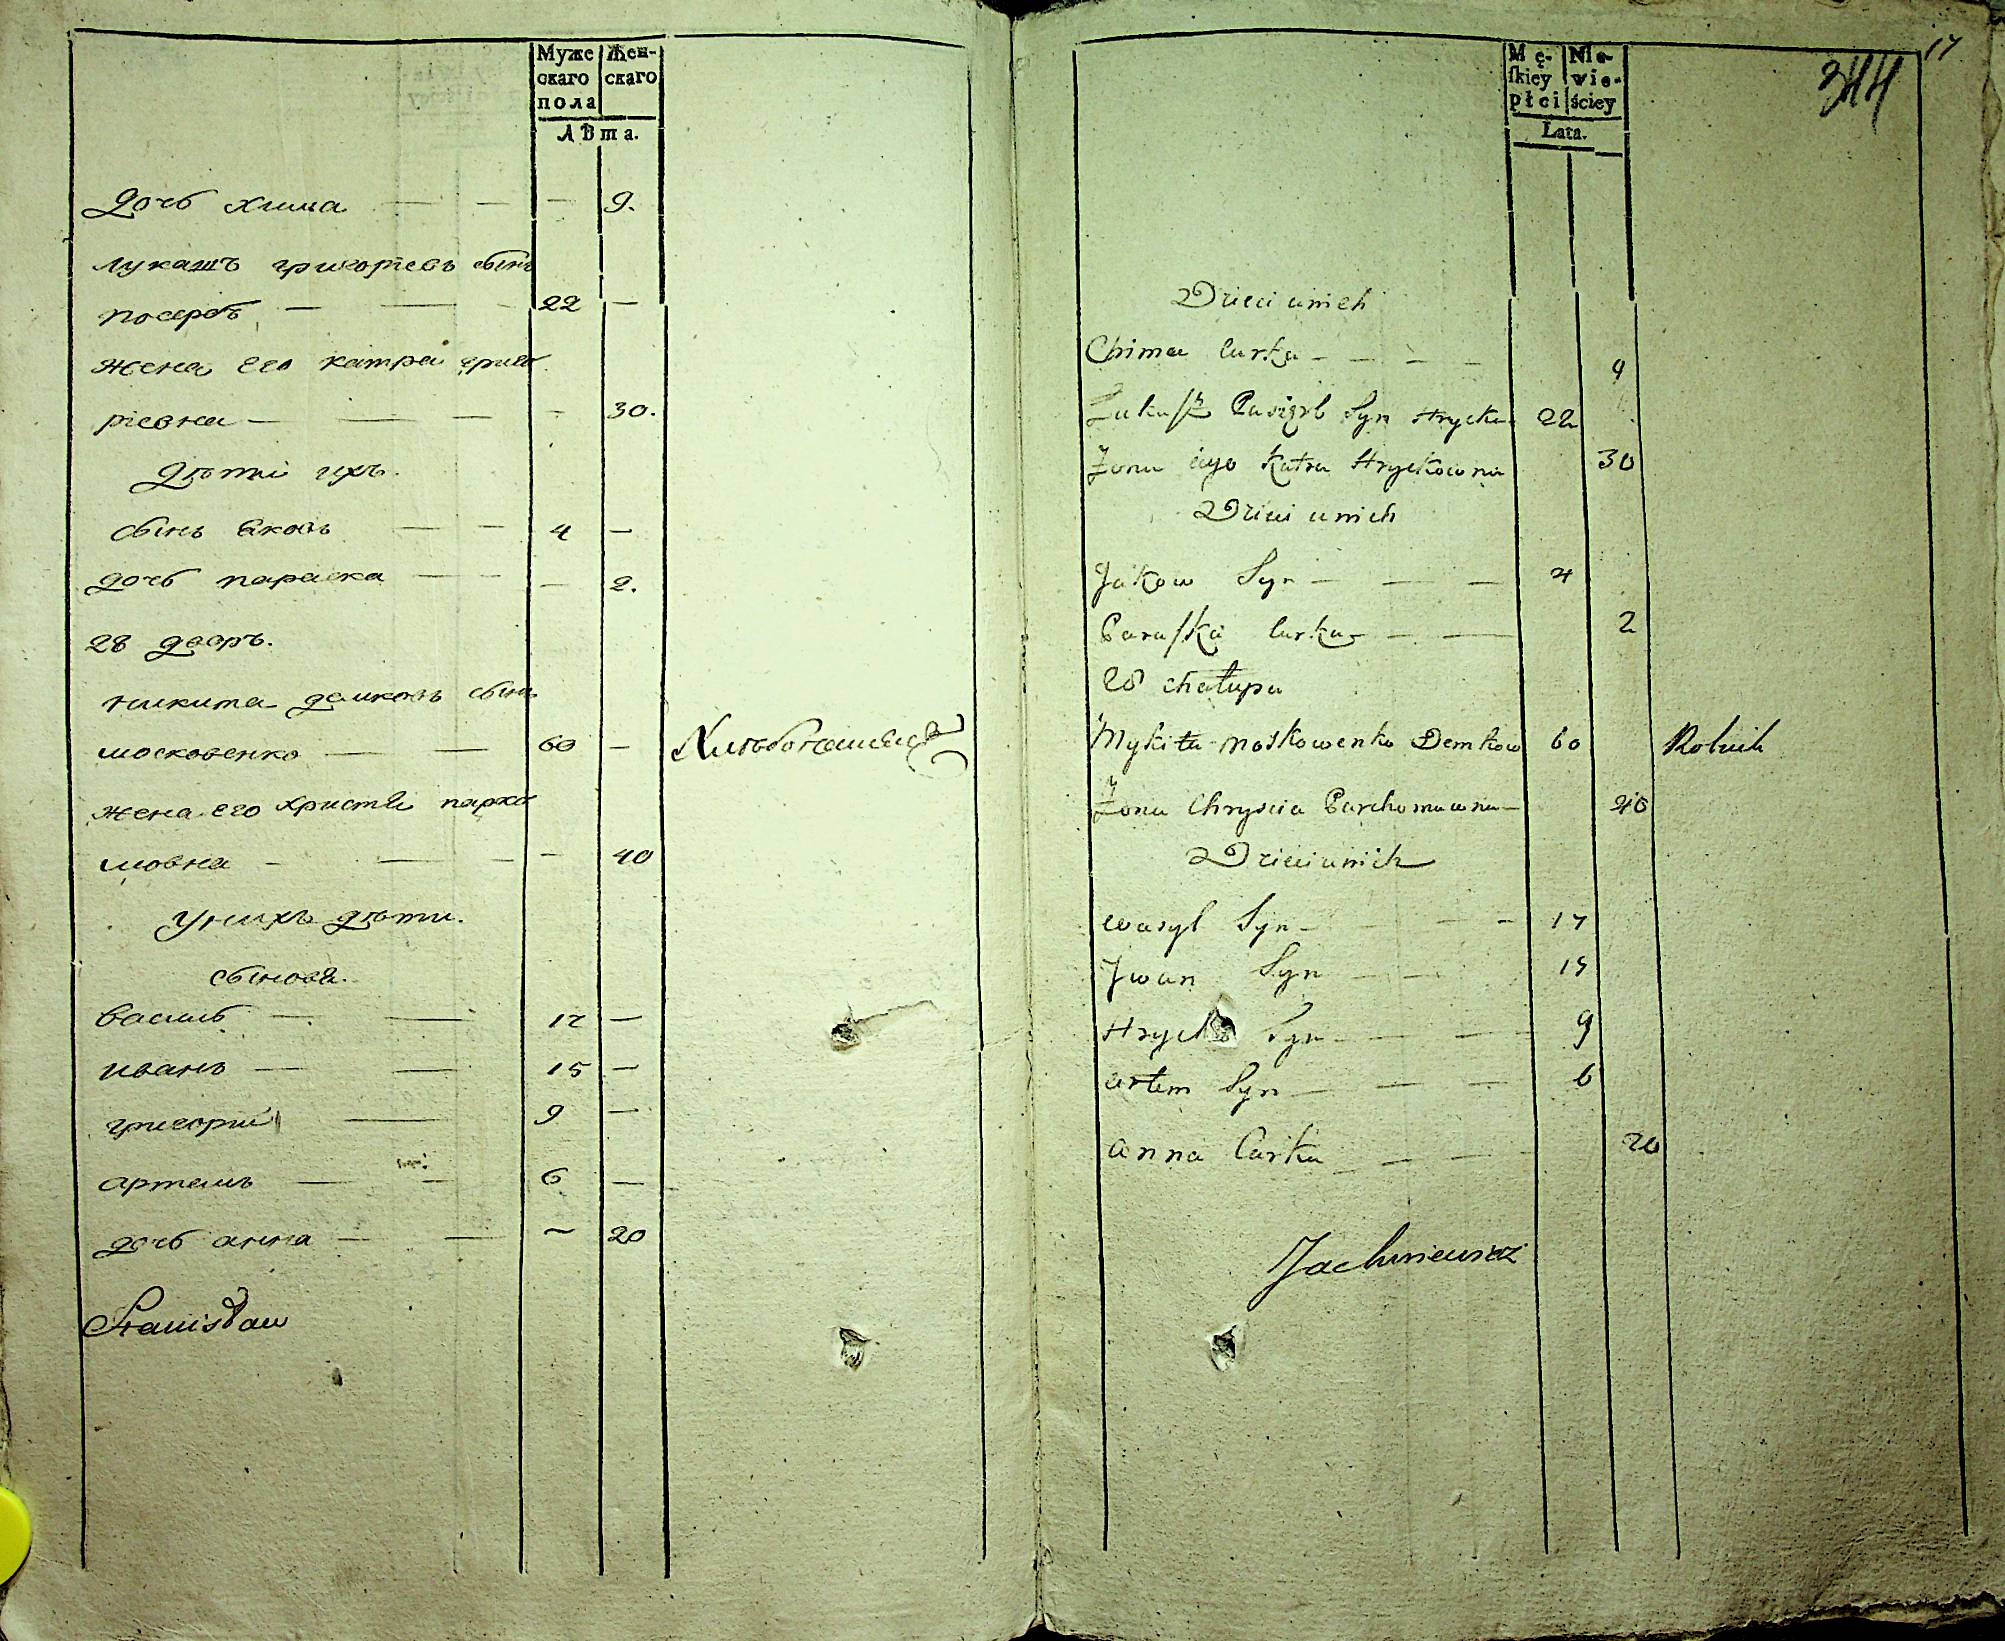 Муже
скаго
пола
Жен-
скаго
Лѣта.
дочь хима — — — 9.
лукашъ григорїевъ сынъ
посербъ — — 22 —
жена его катра григо
рїевна — — — — 30.
дѣти ихъ.
сынъ яковъ — — 4 —
дочь параска — — — 2.
28 дворъ.
никита демковъ сынъ
московенко — — 60 — Хлѣбопашецъ
жена его христя пархо
мовна — — — — 40
у нихъ дѣти.
сыновя.
василь — — 17 —
иванъ — — 15 —
григорий — 9 —
артемъ — — 6 —
дочь анна — — — 20
Stanisław
17
344
Mę-
ſkiey
płci
Nie-
wie-
ściey
Lata.
Dzieci u nich
Chima Curka — — — — 9
Łukaſz Pasierb Syn Hrycka 22
Żona iego Katra Hryckowna 30
Dzieci u nich
Jakow Syn — — — 4
Paraſka Curka — — — 2
28 chałupa
Mykita Moskowenko Demkow 60 Rolnik
Żona Chryscia Parchomowna — 40
Dzieci u nich
Wasyl Syn — — — 17
Jwan Syn — — 15
Hrycko Syn — — — 9
Artem Syn — — — 6
Anna Curka — — — 20
Jachniewicz